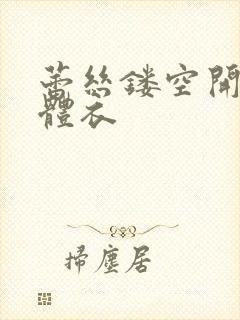 蕾絲鏤空開
體衣
掃塵居